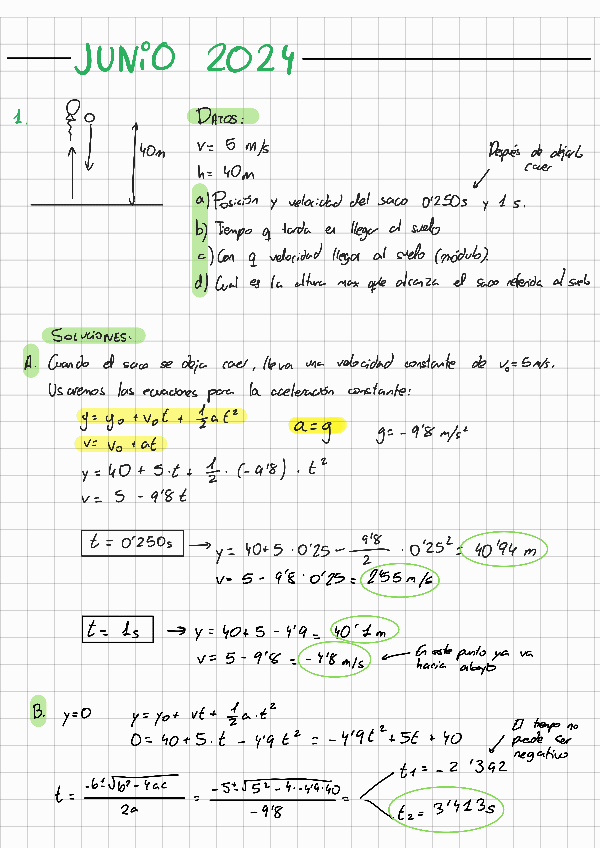 JUNIO 2024
1.
40m
DATOS:
v = 5 m/s
h = 40m
Después de dejarlo caer
a) Posición y velocidad del saco 0'250s y 1 s.
b) Tiempo q tarda en llegar al suelo
c) Con q velocidad llega al suelo (módulo).
d) Cual es la altura max que alcanza el saco referida al suelo
SOLUCIONES:
A. Cuando el saco se deja caer, lleva una velocidad constante de v₀ = 5 m/s.
Usaremos las ecuaciones para la aceleración constante:
y = y₀ + v₀t + 1/2 at²
a = g
g = -9'8 m/s²
v = v₀ + at
y = 40 + 5·t + 1/2 · (-9'8) · t²
v = 5 - 9'8t
t = 0'250s → y = 40 + 5 · 0'25 - 9'8/2 · 0'25² = 40'94 m
v = 5 - 9'8 · 0'25 = 2'55 m/s
t = 1s → y = 40 + 5 - 4'9 = 40'1 m
v = 5 - 9'8 = -4'8 m/s ← En este punto ya va hacia abajo
B. y = 0 y = y₀ + vt + 1/2 a·t²
0 = 40 + 5·t - 4'9t² = -4'9t² + 5t + 40
El tiempo no puede ser negativo
t = -b±√b²-4ac / 2a = -5±√5²-4·-4'9·40 / -9'8 =
t₁ = -2'392
t₂ = 3'413s